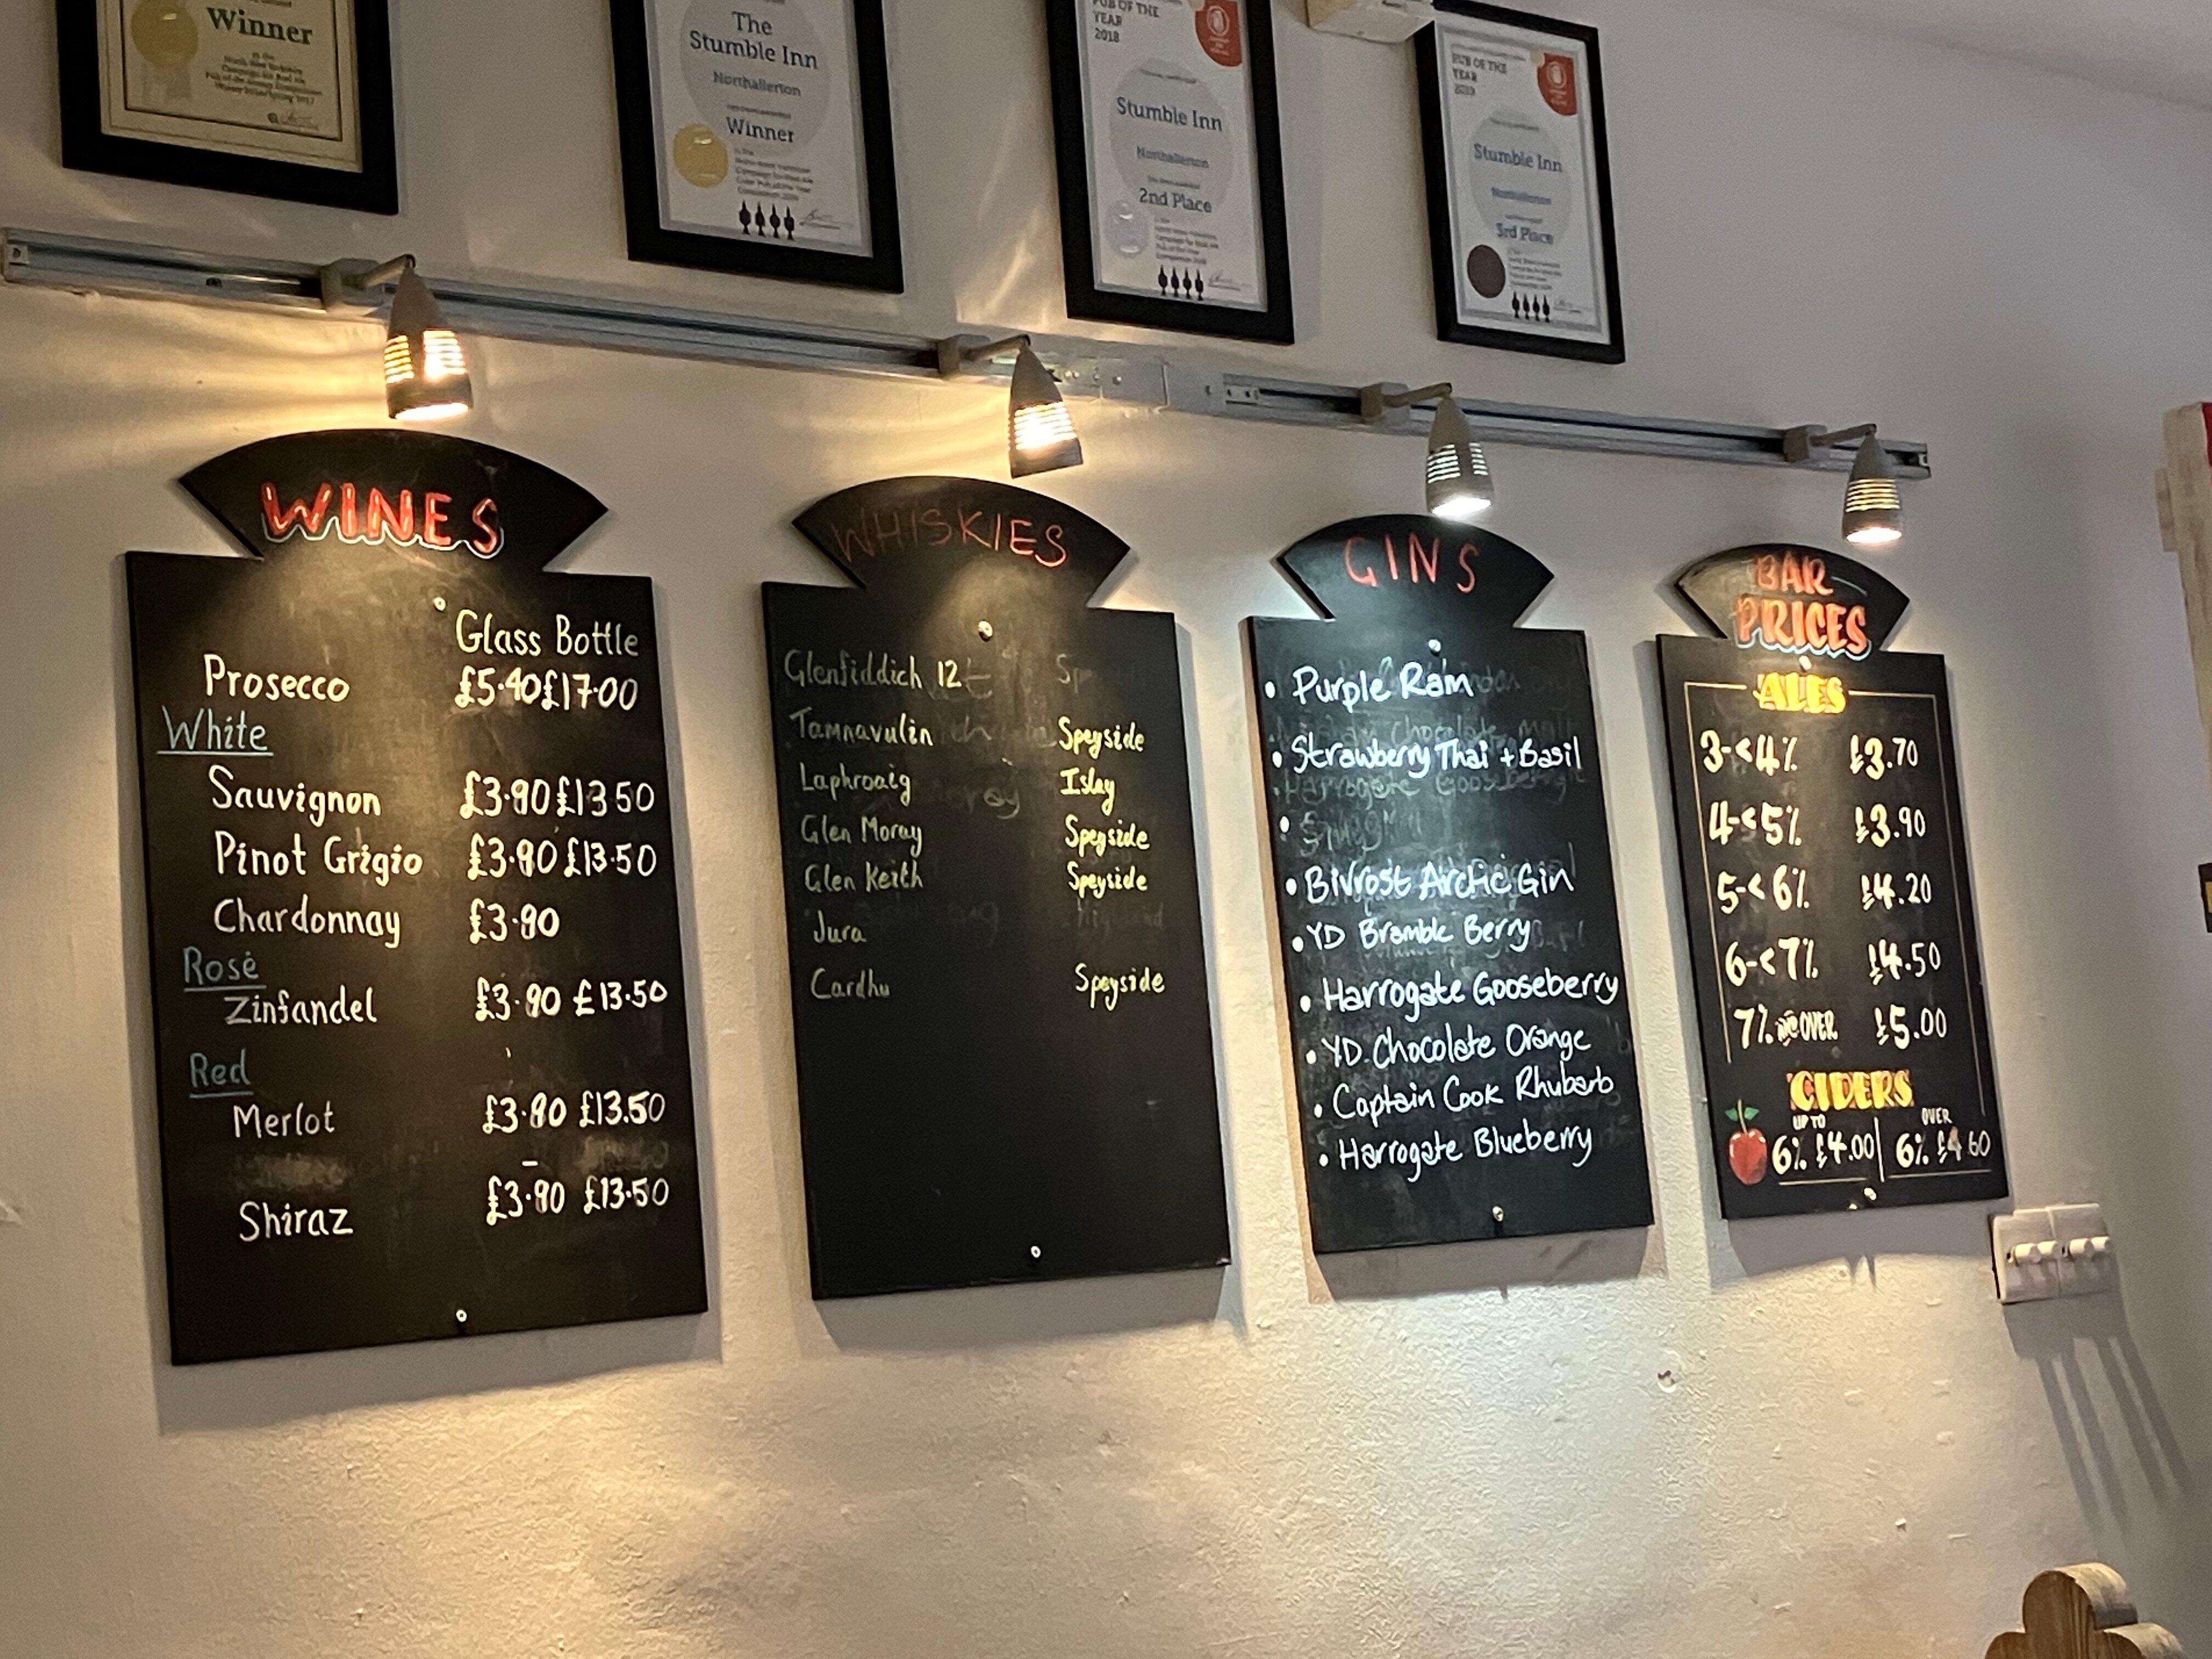 Winner
The
Stumble Inn
Northallerton
Winner
PUB OF THE
YEAR
2018
Stumble Inn
Northallerton
2nd Place
PUB OF THE
YEAR
2019
Stumble Inn
Northallerton
3rd Place
WINES
Glass Bottle
Prosecco £5.40 £17.00
White
Sauvignon £3.90 £13 50
Pinot Grigio £3.90 £13.50
Chardonnay £3.90
Rosé
Zinfandel £3.90 £13.50
Red
Merlot £3.90 £13.50
Shiraz £3.90 £13.50
WHISKIES
Glenfiddich 12
Tamnavulin Speyside
Laphroaig Islay
Glen Moray Speyside
Glen Keith Speyside
Jura
Cardhu Speyside
GINS
• Purple Rain
• Strawberry Thai + Basil
•
• Bivrost Arctic Gin
• YD Bramble Berry
• Harrogate Gooseberry
• YD. Chocolate Orange
• Captain Cook Rhubarb
• Harrogate Blueberry
BAR
PRICES
ALES
3-<4% £3.70
4-<5% £3.90
5-<6% £4.20
6-<7% £4.50
7% AND OVER £5.00
CIDERS
UP TO OVER
6% £4.00 6% £4.60